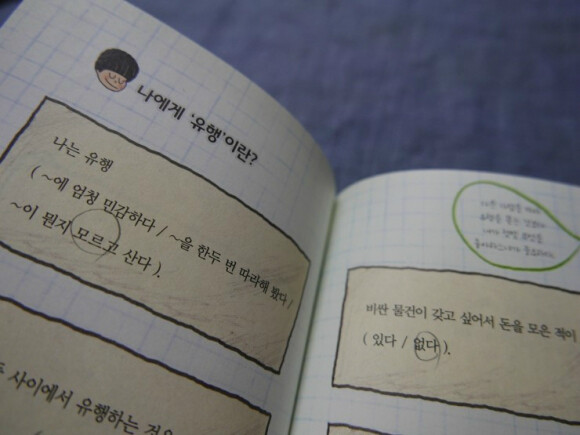 나에게 '유행'이란?
나는 유행
( ~에 엄청 민감하다 / ~을 한두 번 따라해 봤다 /
~이 뭔지 모르고 산다 ).
사이에서 유행하는 것은
비싼 물건이 갖고 싶어서 돈을 모은 적이
( 있다 / 없다 ).